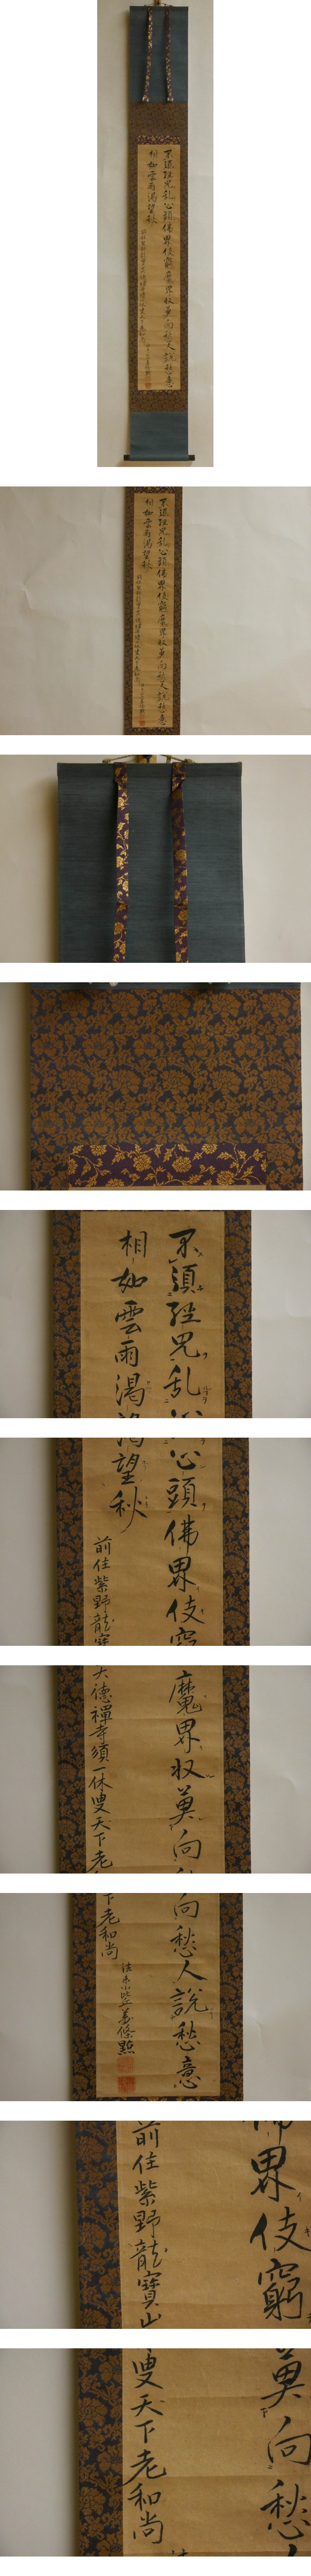 不須經咒乱心頭佛界伎窮魔界収莫向愁人説愁意
相如雲雨渇望秋
前住紫野龍寶山大德禪寺須一休叟天下老和尚
法末小比丘